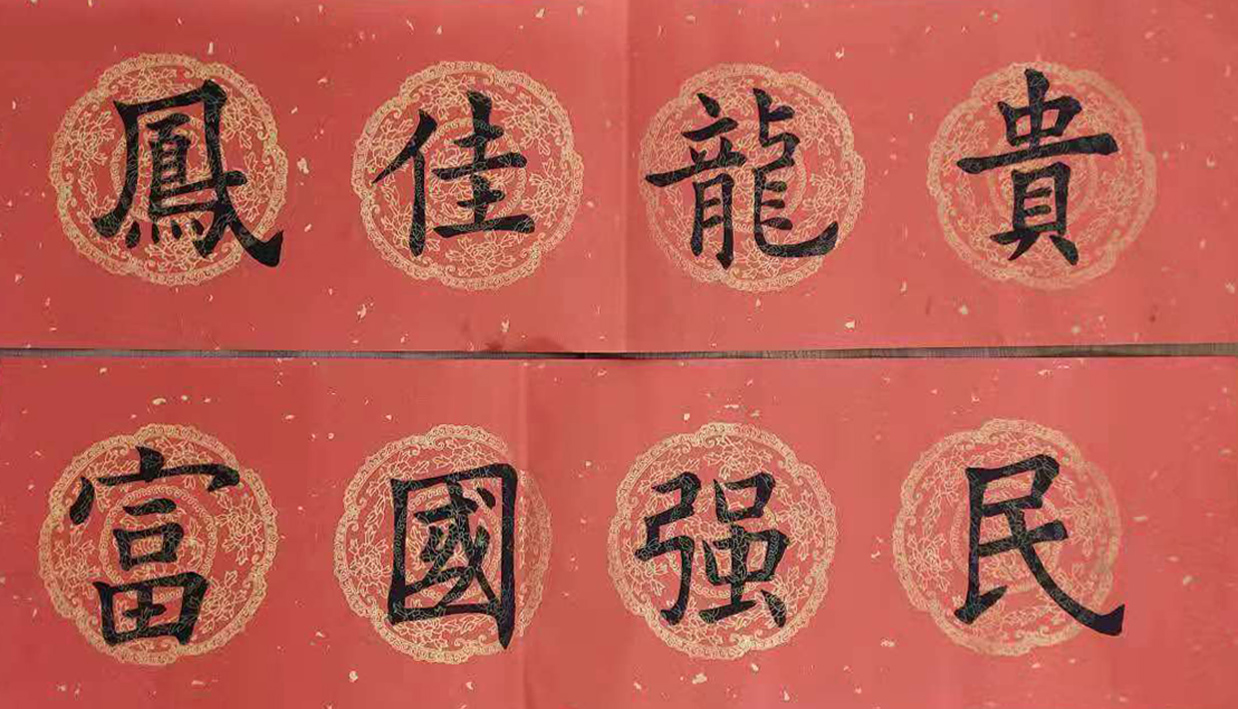 鳳佳龍貴
富國强民